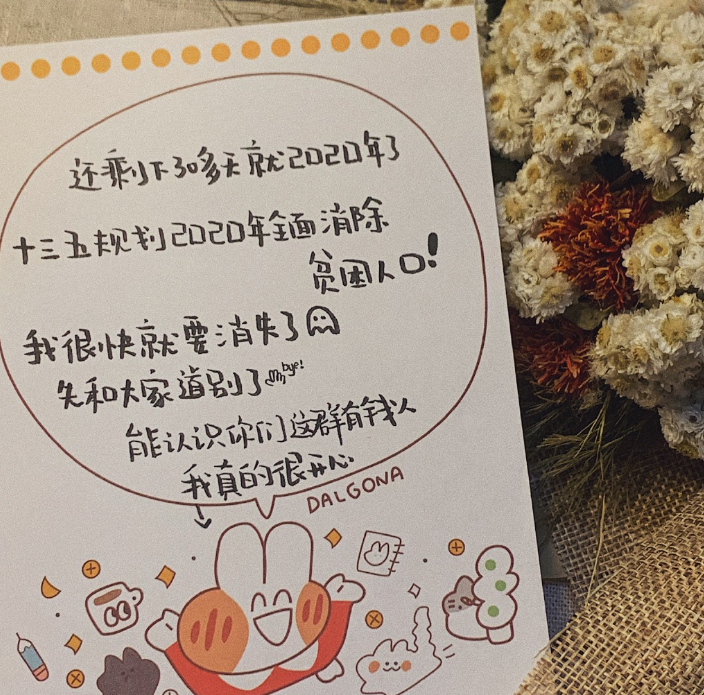 还剩下30多天就2020年了
十三五规划2020年全面消除
贫困人口!
我很快就要消失了
先和大家道别了 bye!
能认识你们这群有钱人
我真的很开心
DALGONA